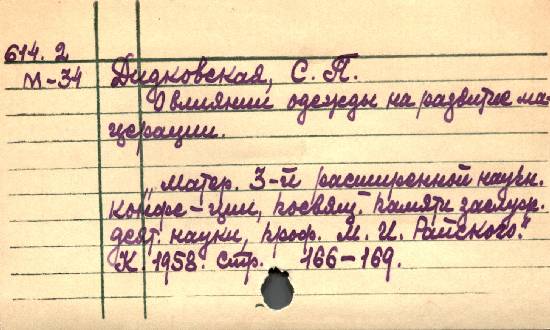 614.2
М-34
Дидковская, С. П.
О влиянии одежды на развитие ма-
церации.
„Матер. 3-й расширенной научн.
конфе-ции, посвящ. памяти заслуж.
деят. науки, проф. М. И. Райского."
К. 1958. стр. 166-169.